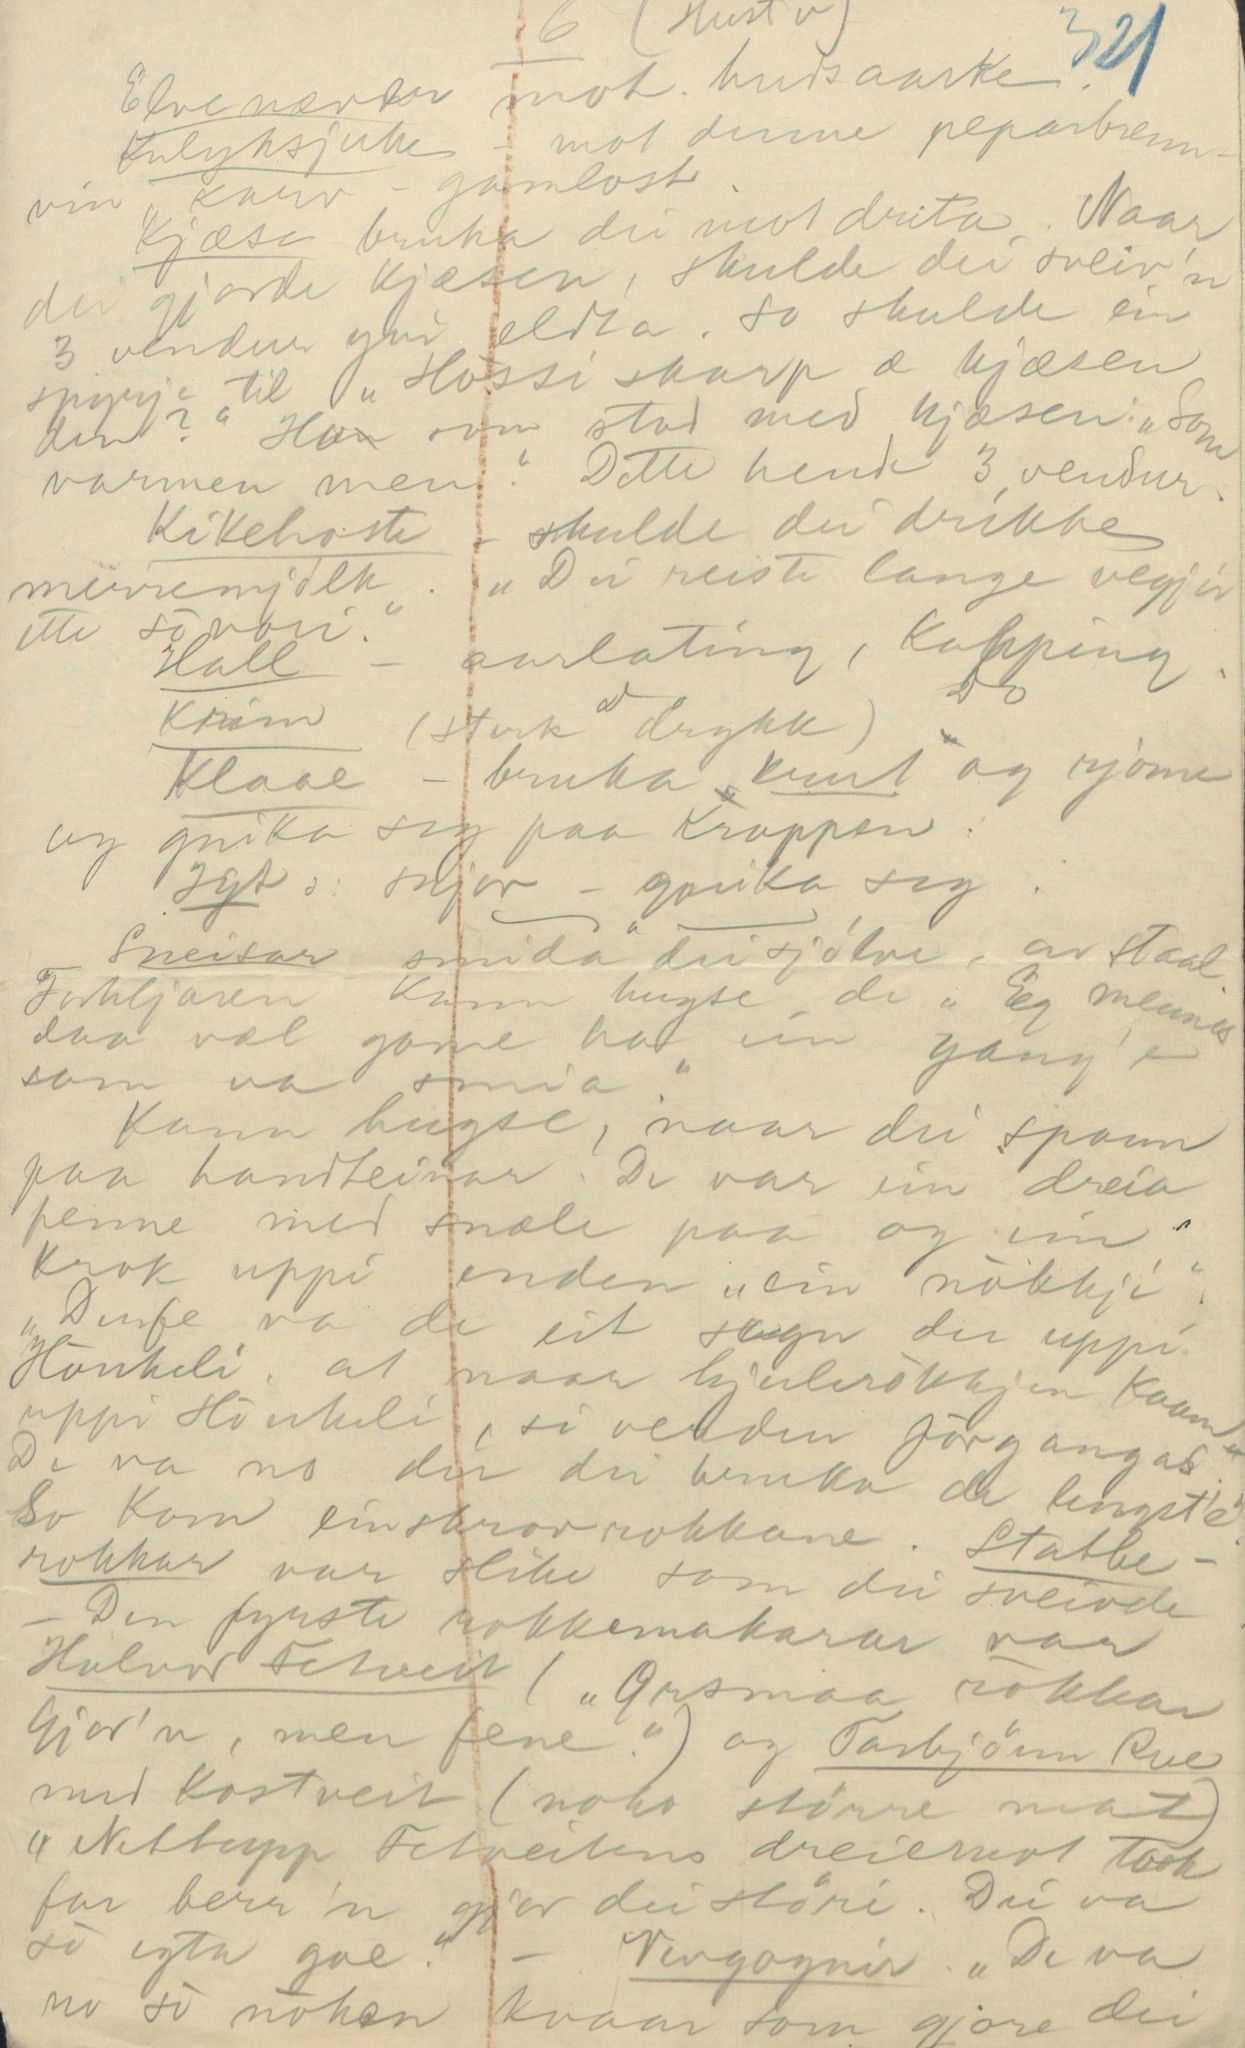 6 (Hust v) 321
Elvenæver mot. hudsaarke.
Kulyksjuke - mot denne peparbrenn-
vin, karv - gamlost.
Kjæse bruka dei mot drita. Naar
dei gjorde kjæsen, skulde dei sveiv'n
3 vendur yvi eldta. So skulde ein
spyrje til „Hossi skarp æ kjæsen
den?" Han som stod med kjæsen: „Som
varmen men." Dette hende 3 vendur.
Kikehoste - skulde dei drikke
merremjölk. „Dei reiste lange vegjir
ette sovori."
Hall - aarlating, kopping.
Krim (sterk drykk) Do
Klaae - bruka „krut" og rjome
og gnika seg paa kroppen.
Igt o: snjor - gnika seg.
Sneisar smida dei sjölve, av staal.
Forteljaren kann hugse de „Eg meiner
daa væl game ha ein gang'e
som va smia."
Kann hugse, naar dei spann
paa handteinar. De var ein dreia
penne med snæle paa og ein
krok uppi enden „ein nökkji".
„Derfe va de eit sogn der uppi
Hönkeli, at naar hjulrökkjen kaam
uppi Hönkeli, si verden forgangas."
De va no der dei bruka de lengst'e"
So kom einskrovrokkane. Stabbe-
rokkar var slike som dei sveivde
- Den fyrste rokkemakarar var
Halvor Tetveit („Örsmaa rokkar
gjor'n, men fene.") og Tarbjönn Rue
med Kostveit (noko större mat)
„Nettupp Tetveitens dreiemot took
far berr'n gjor dei störi. Dei va
so egta goe." - Nevgognir. „De va
no so noken kvaar som gjore dei